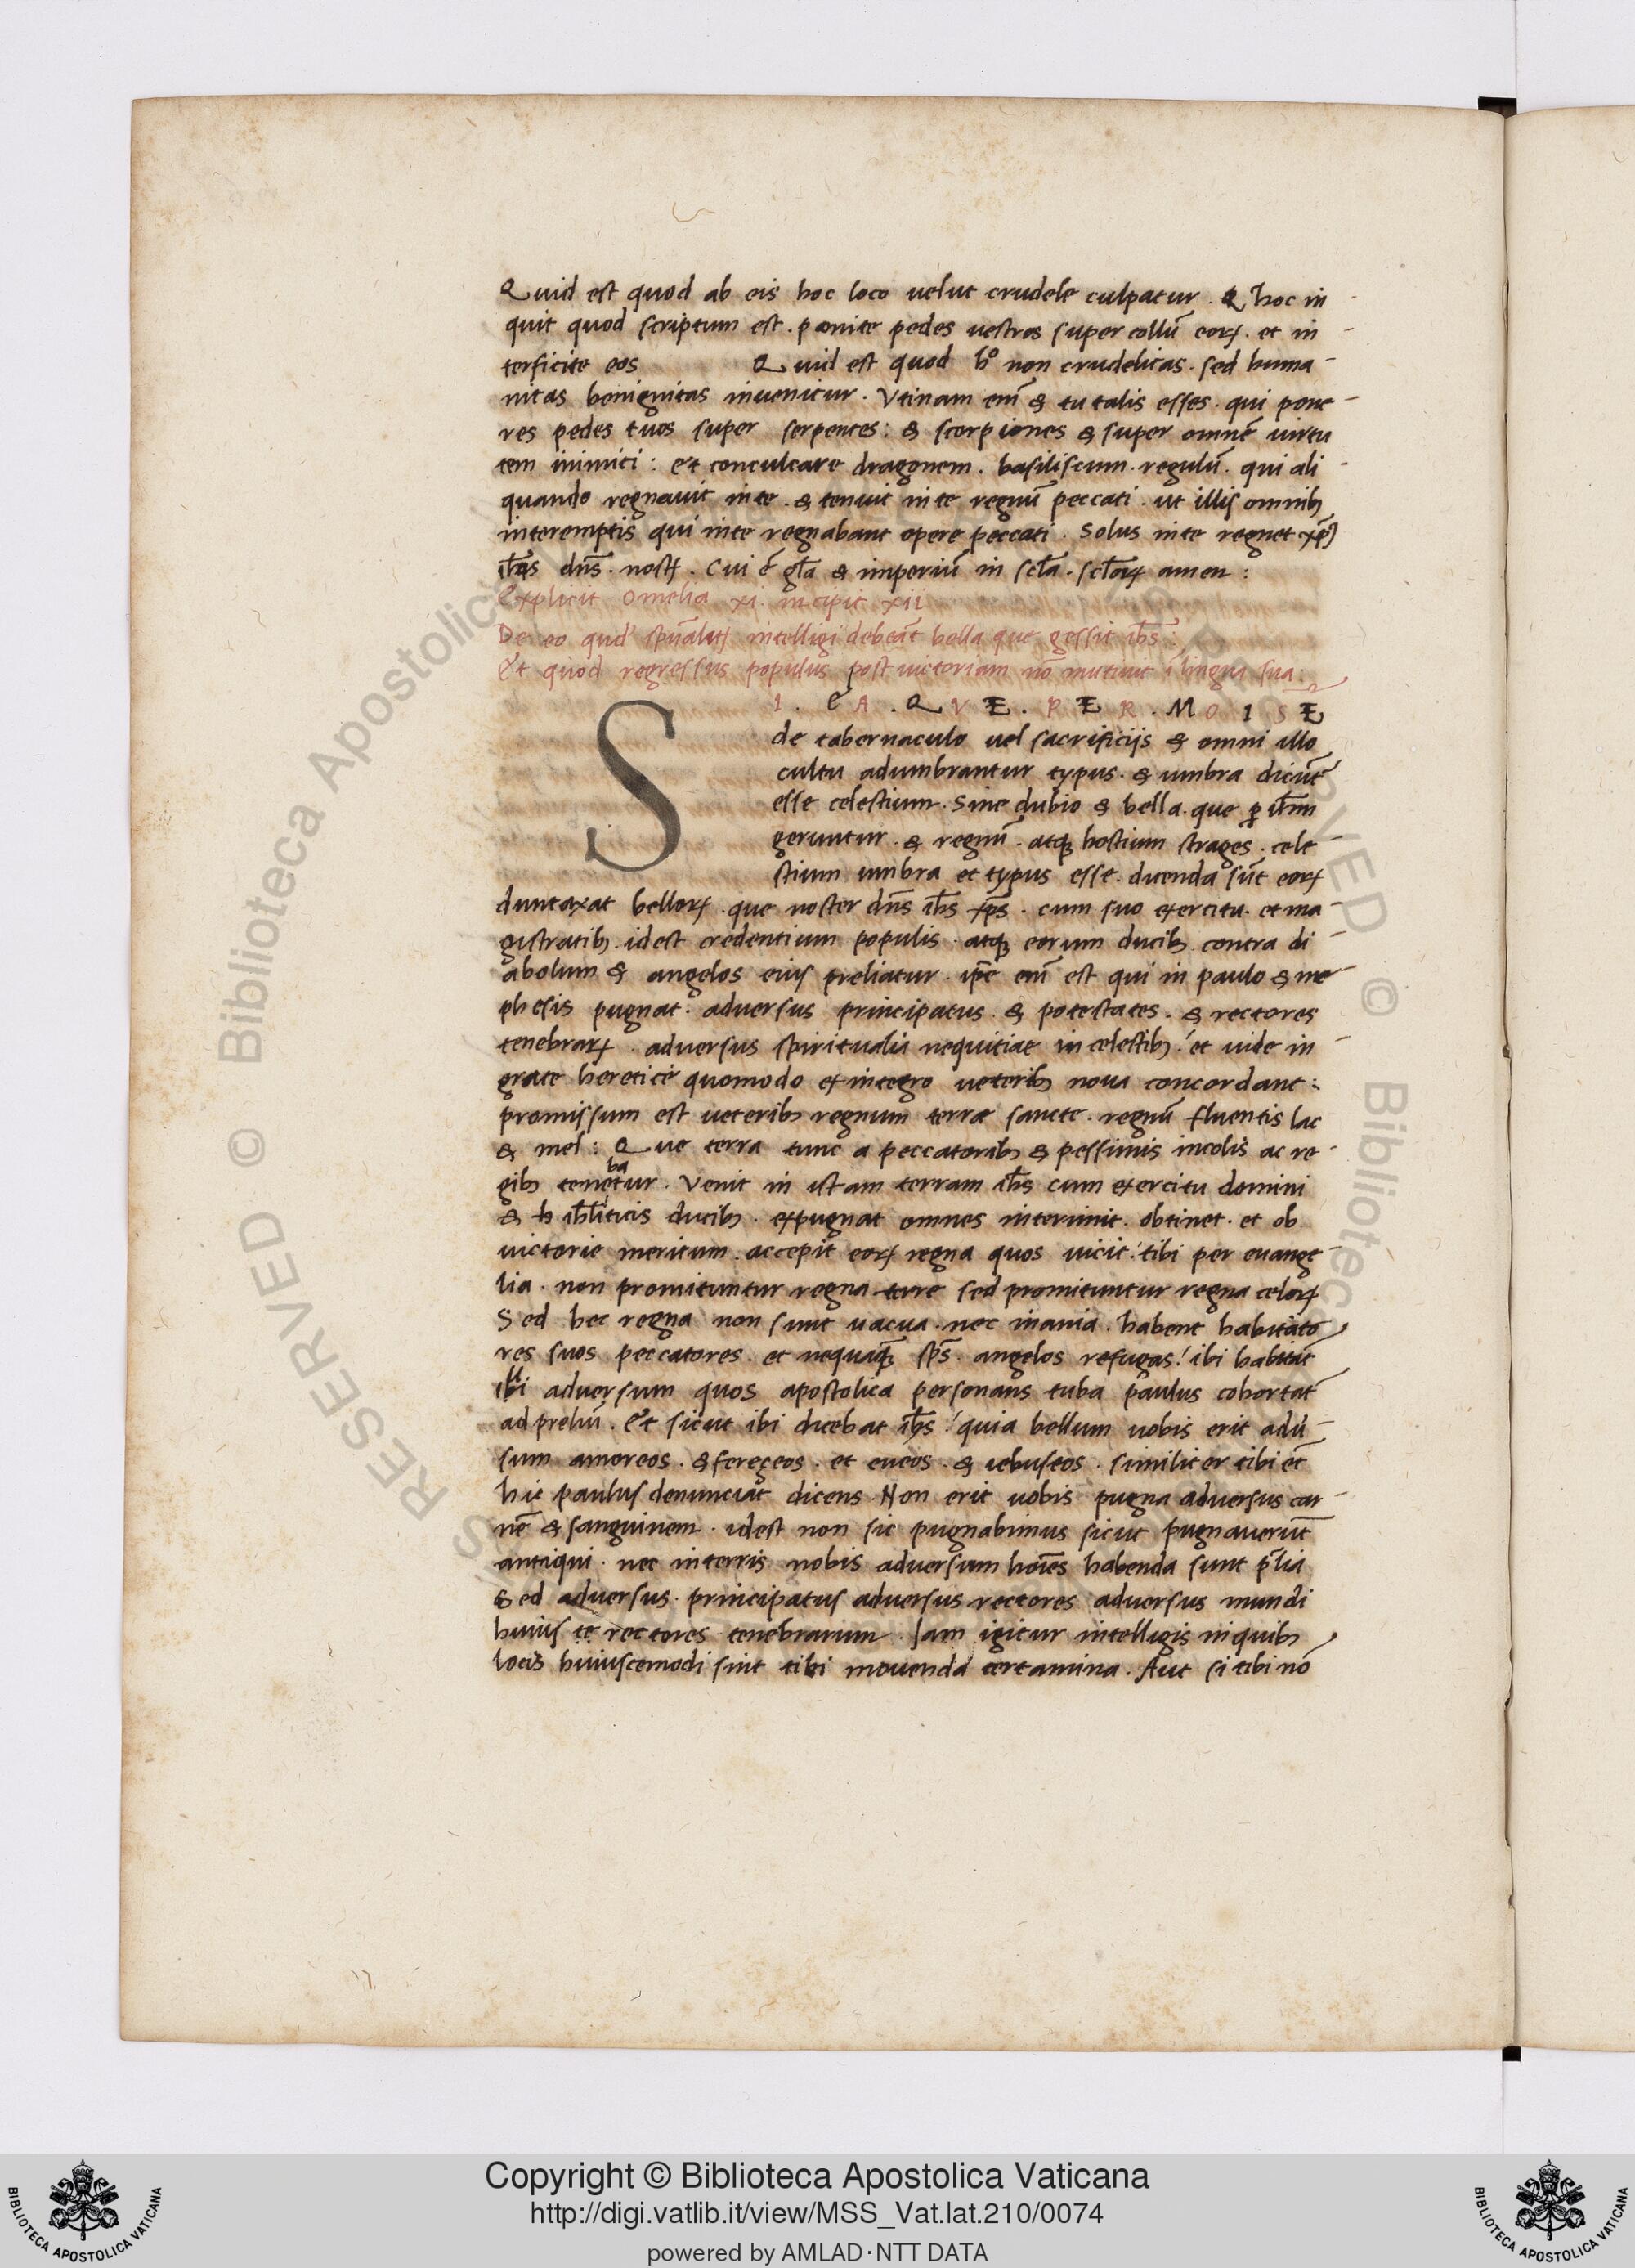 Quid est quod ab eis hoc loco uelut crudele culpatur . Q hoc in
quit quod scriptum est . ponite pedes uestros super collũ eoꝝ . et in
terficite eos Quid est quod hº non crudelitas . sed huma-
nitas benignitas inuenitur . Vtinam em̃ & tu talis esses . qui pone-
res pedes tuos super serpentes : & scorpiones & super omnẽ uirtu
tem inimici : et conculcare dragonem . basiliscum . regulũ . qui ali-
quando regnauit in te . & tenuit in te regnũ peccati . ut illis omnibꝫ
interemptis qui in te regnabant opere peccati . Solus in te regnet xp̃s
ih̃us dñs . nostꝝ . Cui ẽ gl̃a & imperiũ in scl̃a . scl̃oꝝ amen :
Explicit omelia xi . incipit xii
De eo quod sp̃ualitꝝ intelligi debeãt bella que gessit ih̃s :
Et quod regressus populus post uictoriam nõ mutiuit ĩ lingua sua :
S I . E A . Q V E . P E R . M O I S E
de tabernaculo uel sacrificijs & omni illo
cultu adumbrantur typus . & umbra dicũt
esse celestium . Sine dubio & bella . que ꝑ ih̃m
geruntur . & regnũ . atqꝫ hostium strages . cele-
stium umbra et typus esse . ducenda sũt eoꝝ
duntaxat belloꝝ . que noster dñs ih̃s xp̃s . cum suo exercitu . et ma-
gistratibꝫ . idest credentium populis . atqꝫ eorum ducibꝫ contra di-
abolum & angelos eius preliatur . ip̃e em̃ est qui in paulo & in e-
phesis pugnat . aduersus principatus . & potestates . & rectores
tenebraꝝ . aduersus spiritualia nequitiae in celestibꝫ . et uide in-
grate heretice quomodo ex integro ueteribꝫ noua concordant :
promissum est ueteribꝫ regnum terrae sancte . regnũ fluentis lac
& mel : Que terra tunc a peccatoribꝫ & pessimis incolis ac re-
gibꝫ tenebatur . Venit in istam terram ih̃s cum exercitu domini
& ih̃liticis ducibꝫ . expugnat omnes interimit . obtinet . et ob
uictorie meritum . accepit eoꝝ regna quos uicit : tibi per euange-
lia . non promituntur regna terre sed promituntur regna celoꝝ
Sed hec regna non sunt uacua . nec inania . habent habitato
res suos peccatores . et nequaqꝫ sp̃s . angelos refugas ! ibi habitãt
illi aduersum quos apostolica personans tuba paulus cohortat̃
ad preliũ . Et sicut ibi dicebat ih̃s ! quia bellum uobis erit adũ-
sum amoreos . & ferezeos . et eueos . & iebuseos . similiter tibi et̃
hic paulus denunciat dicens . Non erit uobis pugna aduersus car-
nẽ & sanguinem . idest non sic pugnabimus sicut pugnauerũt
antiqui . nec in terris nobis aduersum hoĩes habenda sunt p̃lia
Sed aduersus . principatus aduersus rectores aduersus mundi
huius te rectores tenebrarum . Iam igitur intelligis in quibꝫ
locis huiuscemodi sint tibi mouenda certamina . Aut si tibi nõ
Copyright © Biblioteca Apostolica Vaticana
http://digi.vatlib.it/view/MSS_Vat.lat.210/0074
powered by AMLAD·NTT DATA
BIBLIOTECA APOSTOLICA VATICANA
BIBLIOTECA APOSTOLICA VATICANA